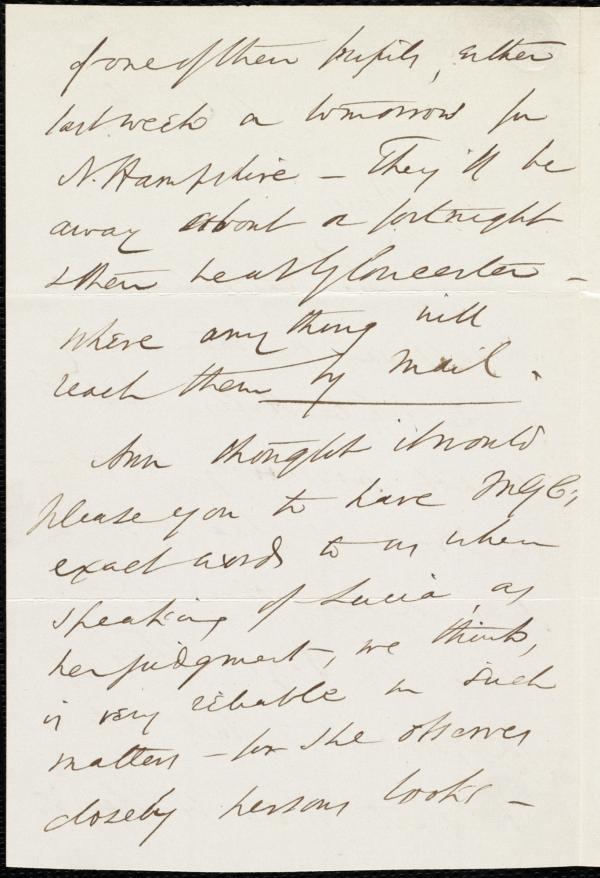 of one of their pupils, either
last week or tomorrow for
N. Hampshire – They'll be
away about a fortnight
& then be at Gloucester –
where any thing will
reach them by mail.
Ann thought it would
please you to have MGC's
exact words to us when
speaking of Lucia, as
her judgment, we think,
is very reliable in such
matters – for she observes
closely persons looks –